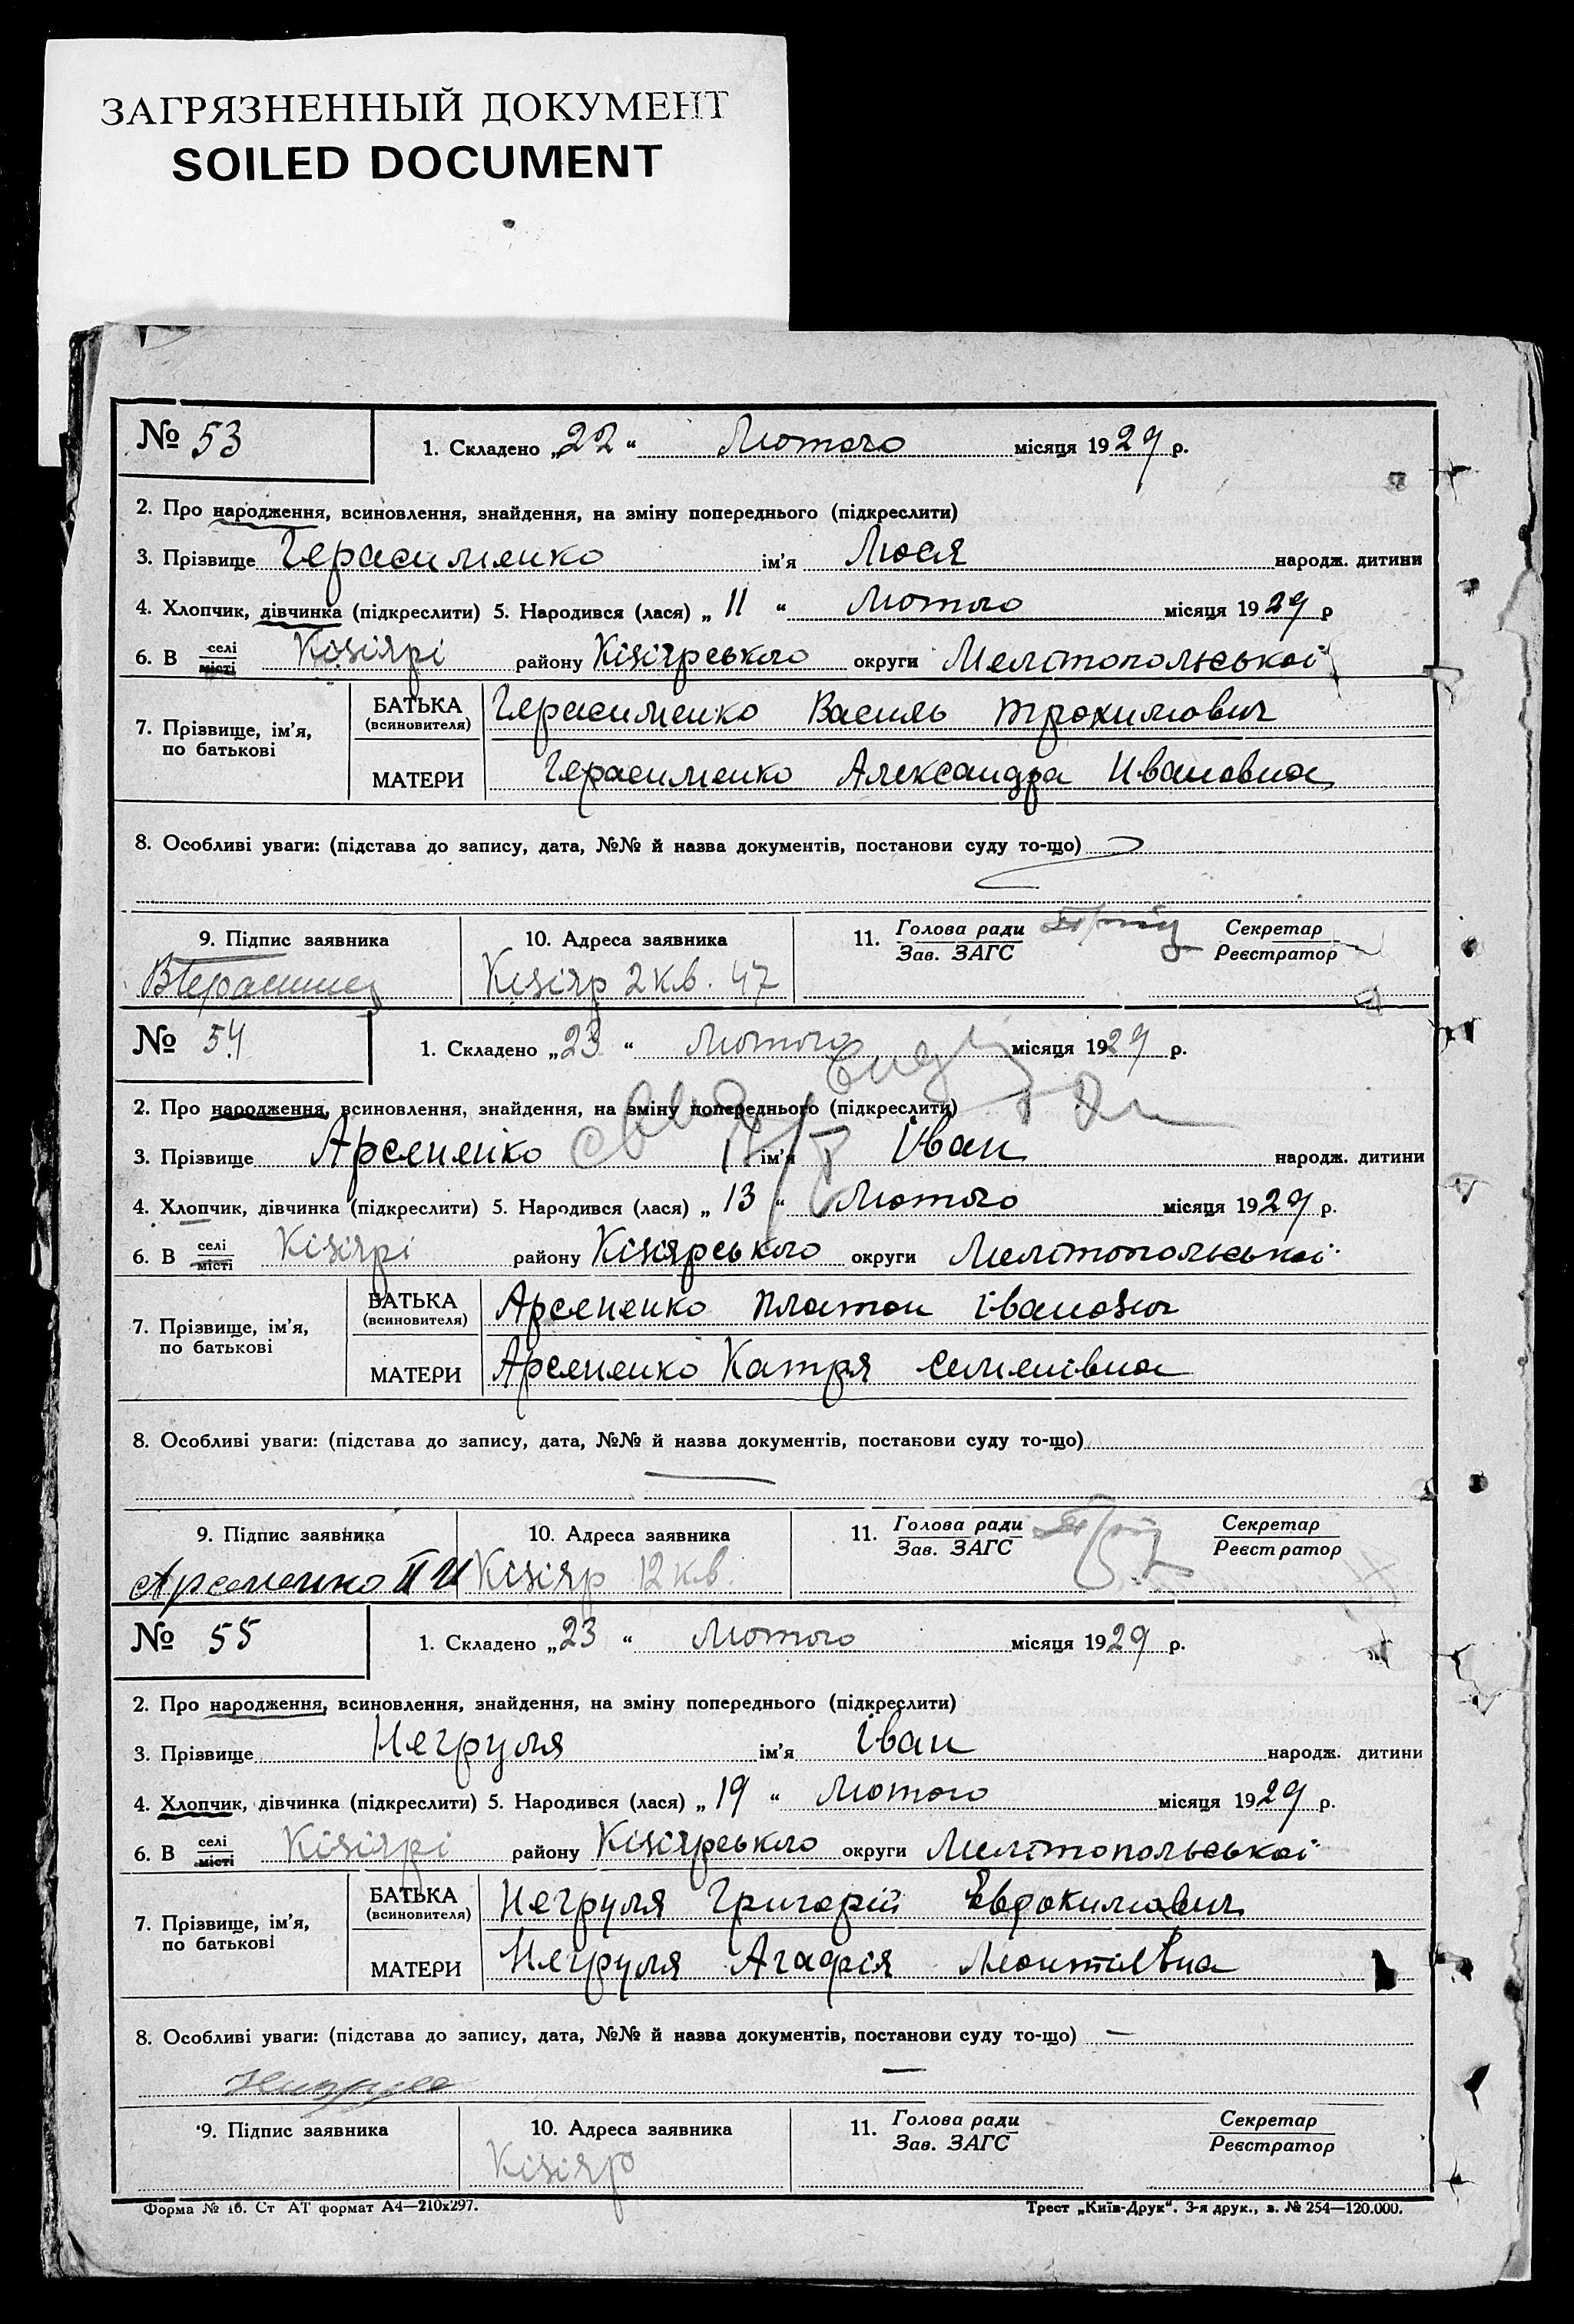 ЗАГРЯЗНЕННЫЙ ДОКУМЕНТ
SOILED DOCUMENT
№ 53
1. Складено „22“ Лютого місяця 1929 р.
2. Про народження, всиновлення, знайдення, на зміну попереднього (підкреслити)
3. Прізвище Герасименко ім'я Люся народж. дитини
4. Хлопчик, дівчинка (підкреслити) 5. Народився (лася) „ 11 “ Лютого місяця 1929 р
6. В селі місті Кізіярі району Кізіярського округи Мелітопольської
7. Прізвище, ім'я, по батькові
БАТЬКА (всиновителя) Герасименко Василь Трохимович
МАТЕРИ Герасименко Александра Ивановна
8. Особливі уваги: (підстава до запису, дата, №№ й назва документів, постанови суду то-що)
9. Підпис заявника
10. Адреса заявника
11. Голова ради Зав. ЗАГС
Секретар Реєстратор
Кізіяр 2 кв. 47
№ 54
1. Складено „23 “ Лютого місяця 1929 р.
2. Про народження, всиновлення, знайдення, на зміну попереднього (підкреслити)
3. Прізвище Арсененко ім'я Іван народж. дитини
4. Хлопчик, дівчинка (підкреслити) 5. Народився (лася) „ 13 “ Лютого місяця 1929 р.
6. В селі місті Кізіярі району Кізіярського округи Мелітопольської
7. Прізвище, ім'я, по батькові
БАТЬКА (всиновителя) Арсененко Платон Іванович
МАТЕРИ Арсененко Катря Семенівна
8. Особливі уваги: (підстава до запису, дата, №№ й назва документів, постанови суду то-що)
9. Підпис заявника
10. Адреса заявника
11. Голова ради Зав. ЗАГС
Секретар Реєстратор
Арсененко П И Кізіяр 12 кв.
№ 55
1. Складено „23 “ Лютого місяця 1929 р.
2. Про народження, всиновлення, знайдення, на зміну попереднього (підкреслити)
3. Прізвище Негруля ім'я Іван народж. дитини
4. Хлопчик, дівчинка (підкреслити) 5. Народився (лася) „ 19 “ Лютого місяця 1929 р.
6. В селі місті Кізіярі району Кізіярського округи Мелітопольської
7. Прізвище, ім'я, по батькові
БАТЬКА (всиновителя) Негруля Григорій Евдокимович
МАТЕРИ Негруля Агафія Леонтієвна
8. Особливі уваги: (підстава до запису, дата, №№ й назва документів, постанови суду то-що) —
9. Підпис заявника
10. Адреса заявника
11. Голова ради Зав. ЗАГС
Секретар Реєстратор
Кізіяр
Форма № 16. Ст АТ формат А4—210х297.
Трест „Київ-Друк“. 3-я друк., з. № 254—120.000.